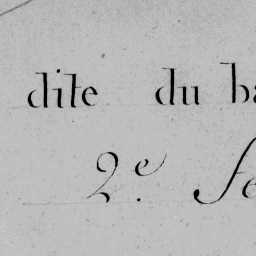 dite du ba
2e. fe